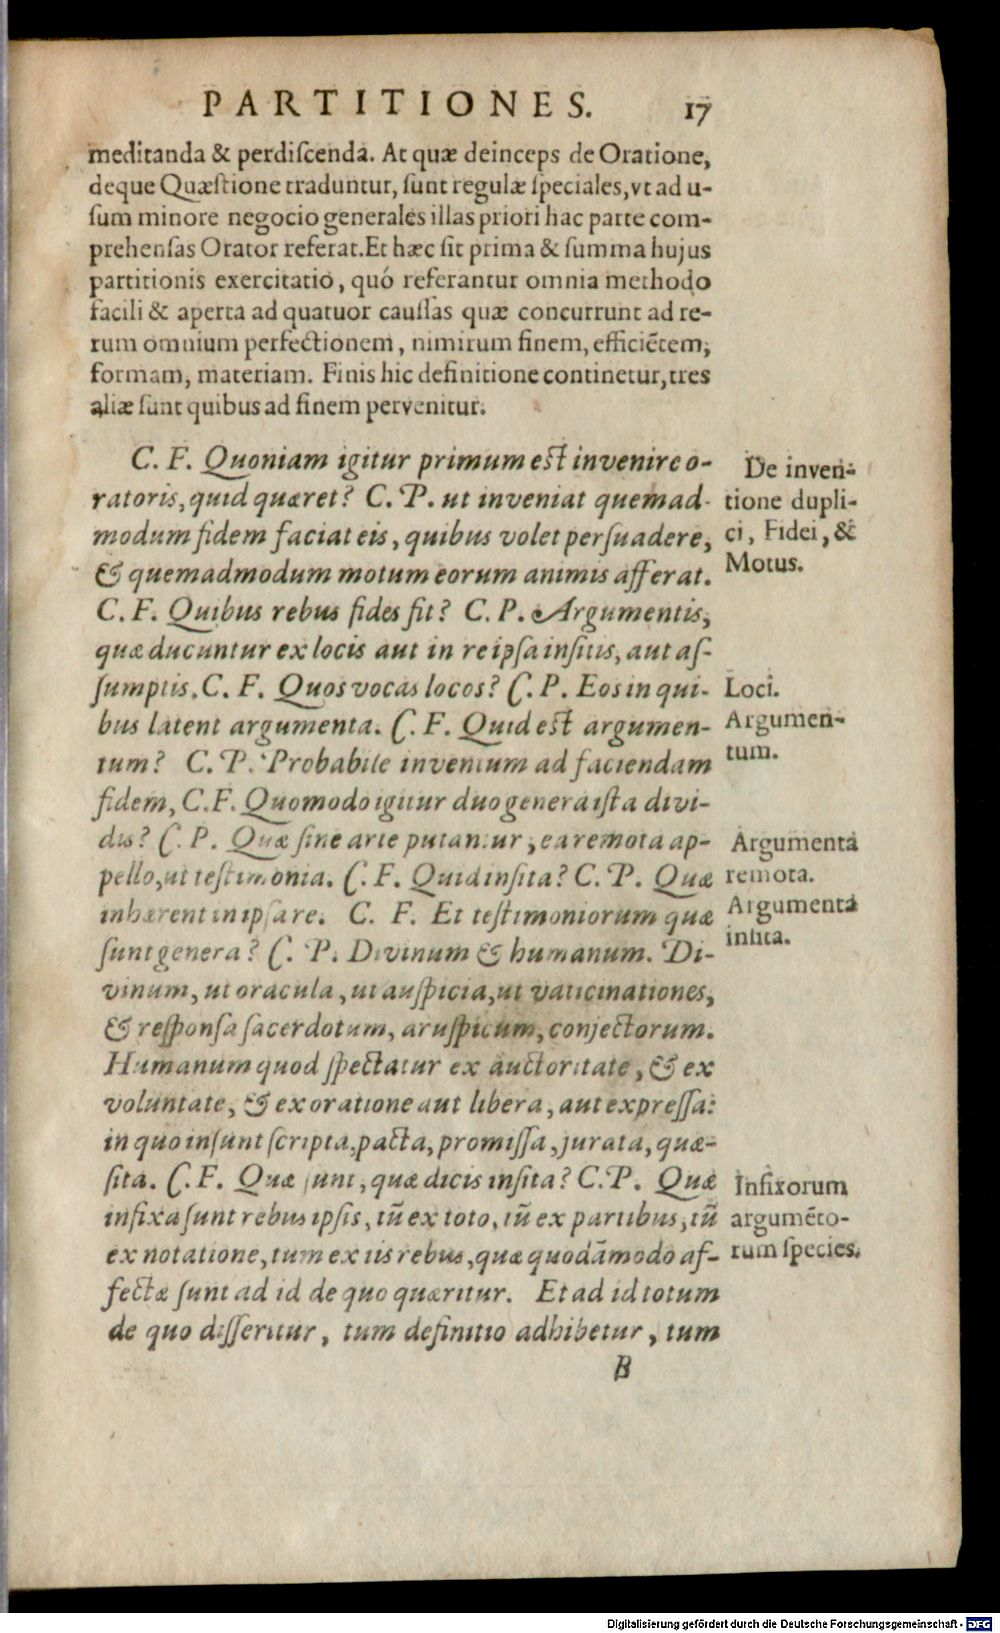 PARTITIONES. 17
meditanda & perdiscenda. At quæ deinceps de Oratione,
deque Quæstione traduntur, sunt regulæ speciales, vt ad u-
sum minore negocio generales illas priori hac parte com-
prehensas Orator referat. Et hæc sit prima & summa hujus
partitionis exercitatio, quó referantur omnia methodo
facili & aperta ad quatuor caussas quæ concurrunt ad re-
rum omnium perfectionem, nimirum finem, efficiētem,
formam, materiam. Finis hic definitione continetur, tres
aliæ sunt quibus ad finem pervenitur.
C. F. Quoniam igitur primum est invenire o-
ratoris, quid quæret? C. P. ut inveniat quemad-
modum fidem faciat eis, quibus volet persuadere,
& quemadmodum motum eorum animis afferat.
C. F. Quibus rebus fides fit? C. P. Argumentis,
quæ ducuntur ex locis aut in re ipsa insitis, aut as-
sumptis. C. F. Quos vocas locos? C. P. Eos in qui-
bus latent argumenta. C. F. Quid est argumen-
tum? C. P. Probabile inventum ad faciendam
fidem, C. F. Quomodo igitur duo genera ista divi-
dis? C. P. Quæ sine arte putantur, ea remota ap-
pello, ut testimonia. C. F. Quid insita? C. P. Quæ
inhærent in ipsa re. C. F. Et testimoniorum quæ
sunt genera? C. P. Divinum & humanum. Di-
vinum, ut oracula, ut auspicia, ut vaticinationes,
& responsa sacerdotum, aruspicum, conjectorum.
Humanum quod spectatur ex auctoritate, & ex
voluntate, & ex oratione aut libera, aut expressa:
in quo insunt scripta, pacta, promissa, jurata, quæ-
sita. C. F. Quæ sunt, quæ dicis insita? C. P. Quæ
infixa sunt rebus ipsis, tū ex toto, tū ex partibus, tū
ex notatione, tum ex iis rebus, quæ quodāmodo af-
fectæ sunt ad id de quo quæritur. Et ad id totum
de quo disseritur, tum definitio adhibetur, tum
B
De inven-
tione dupli-
ci, Fidei, &
Motus.
Loci.
Argumen-
tum.
Argumenta
remota.
Argumenta
insita.
Infixorum
argumēto-
rum species.
Digitalisierung gefördert durch die Deutsche Forschungsgemeinschaft - DFG